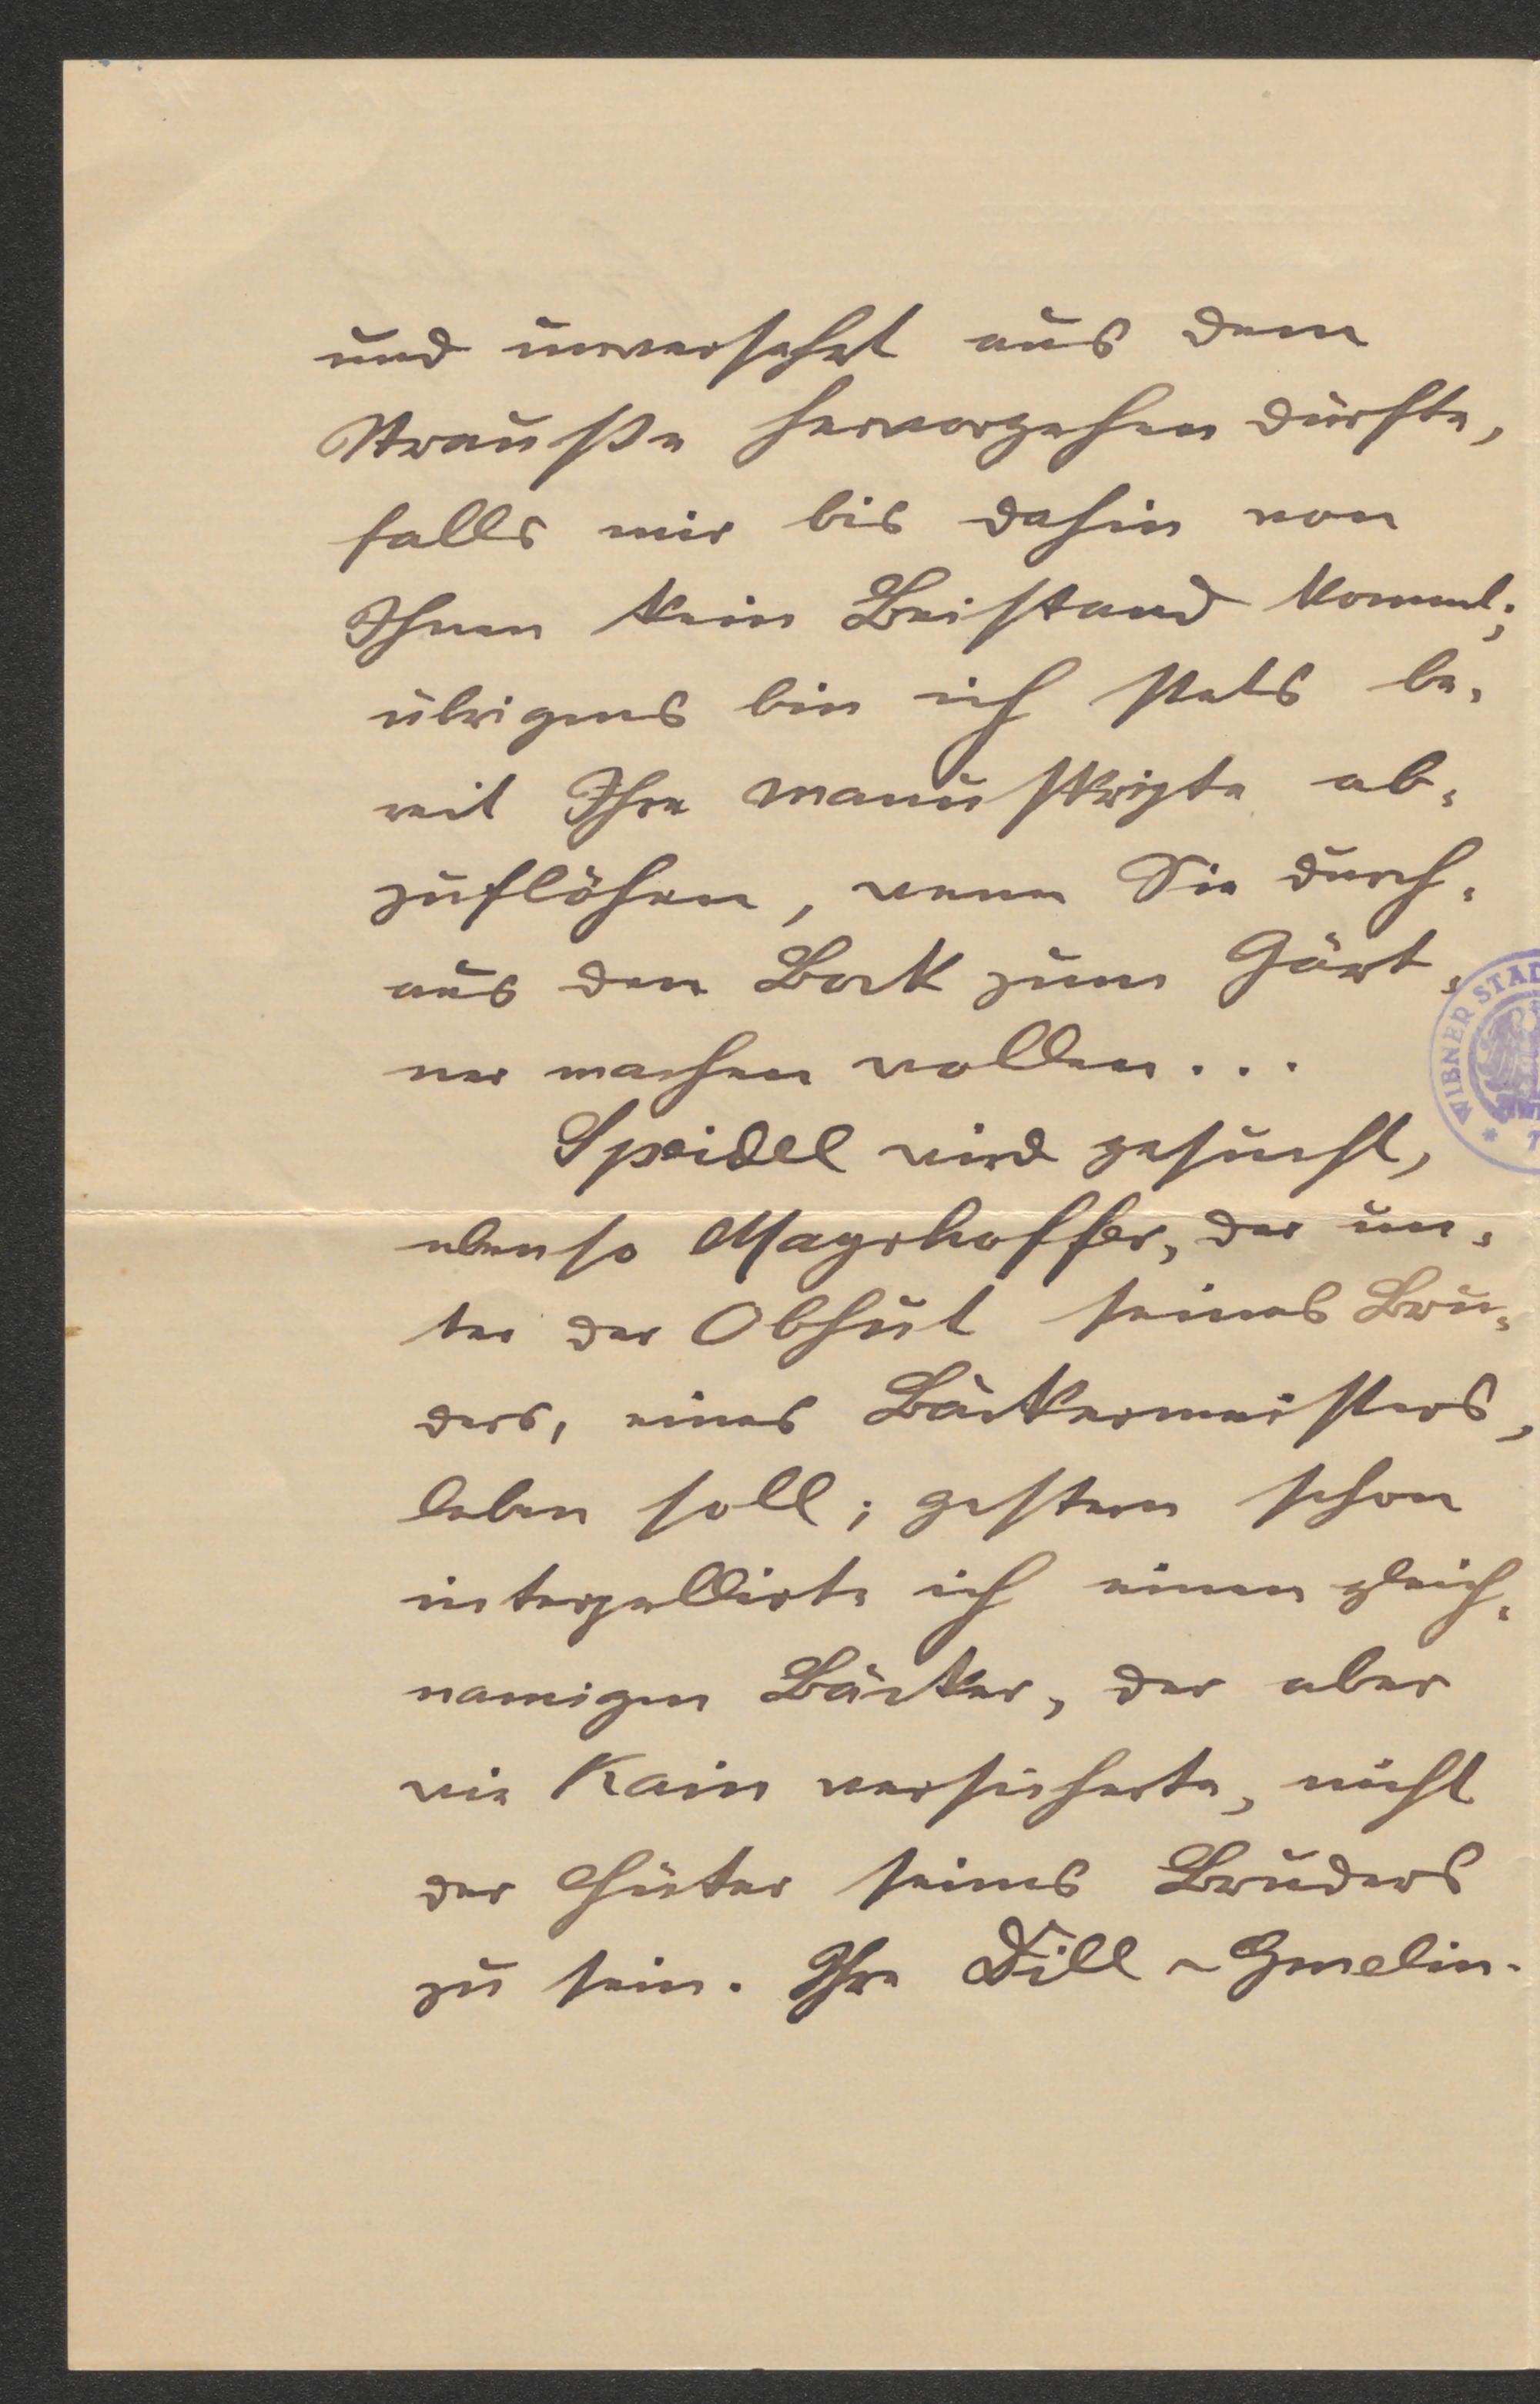 und unversehrt aus dem
Strauße hervorgehen dürfte,
falls mir bis dahin von
Ihnen kein Beistand kommt;
übrigens bin ich stets be-
reit Ihre Manuskripte ab-
zuflöhen, wenn Sie durch-
aus den Bock zum Gärt-
ner machen wollen...
Speidel wird gesucht,
ebenso Mayrhoffer, der un-
ter der Obhut seines Bru-
ders, eines Bäckermeisters,
leben soll; gestern schon
interpellirte ich einen gleich-
namigen Bäcker, der aber
wie Kain versicherte, nicht
der Hüter seines Bruders
zu sein. Ihre Dill-Gmelin.
WIENER STAD